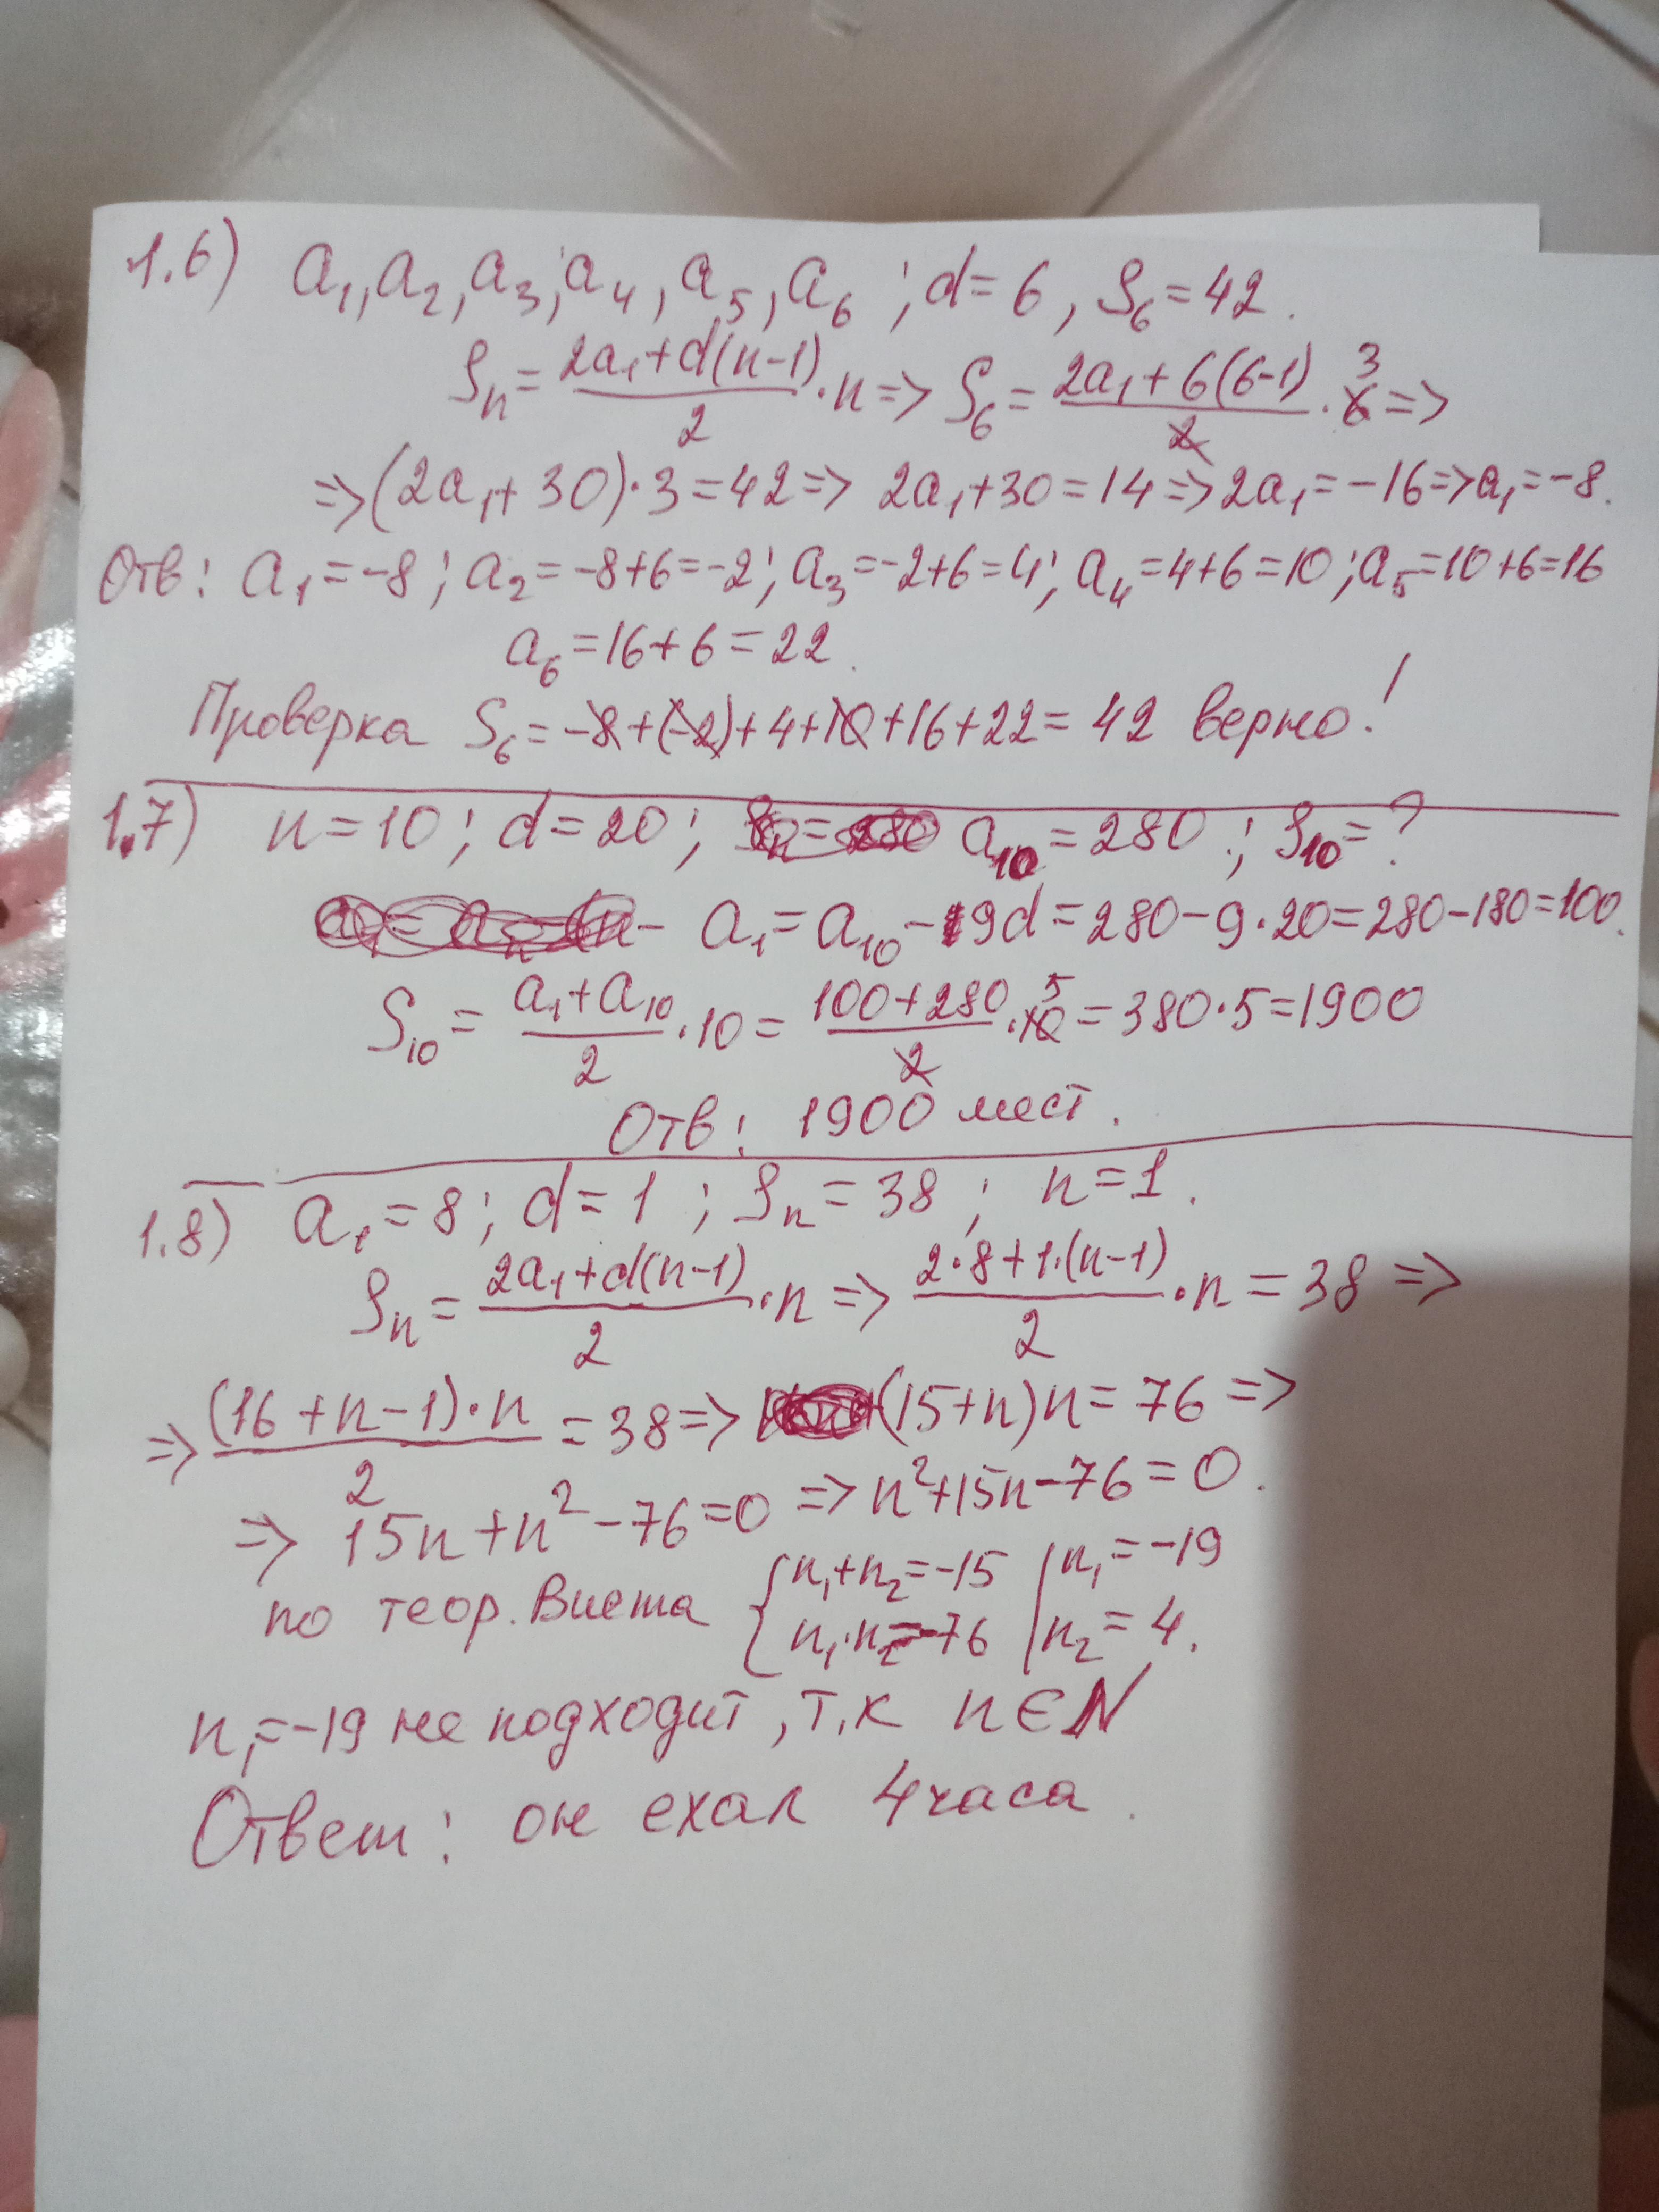 1.6) a₁, a₂, a₃, a₄, a₅, a₆ ; d=6, S₆=42.
Sₙ = (2a₁+d(n-1))/2 · n => S₆ = (2a₁+6(6-1))/2 · 6 3 =>
=> (2a₁+30)·3=42 => 2a₁+30=14 => 2a₁=-16 => a₁=-8.
Отв: a₁=-8; a₂=-8+6=-2; a₃=-2+6=4; a₄=4+6=10; a₅=10+6=16
a₆=16+6=22.
Проверка S₆=-8+(-2)+4+10+16+22=42 верно!
1.7) n=10; d=20; a₁₀=280; S₁₀=?
- a₁=a₁₀-9d=280-9·20=280-180=100.
S₁₀ = (a₁+a₁₀)/2 · 10 = (100+280)/2 · 10 5 = 380·5=1900
Отв: 1900 мест.
1.8) a₁=8; d=1; Sₙ=38; n=1.
Sₙ = (2a₁+d(n-1))/2 · n => (2·8+1·(n-1))/2 · n = 38 =>
=> ((16+n-1)·n)/2 = 38 => (15+n)n=76 =>
=> 15n+n²-76=0 => n²+15n-76=0.
по теор. Виета { n₁+n₂=-15 | n₁=-19
n₁·n₂=-76 | n₂=4.
n₁=-19 не подходит, т.к n∈N
Ответ: он ехал 4 часа.